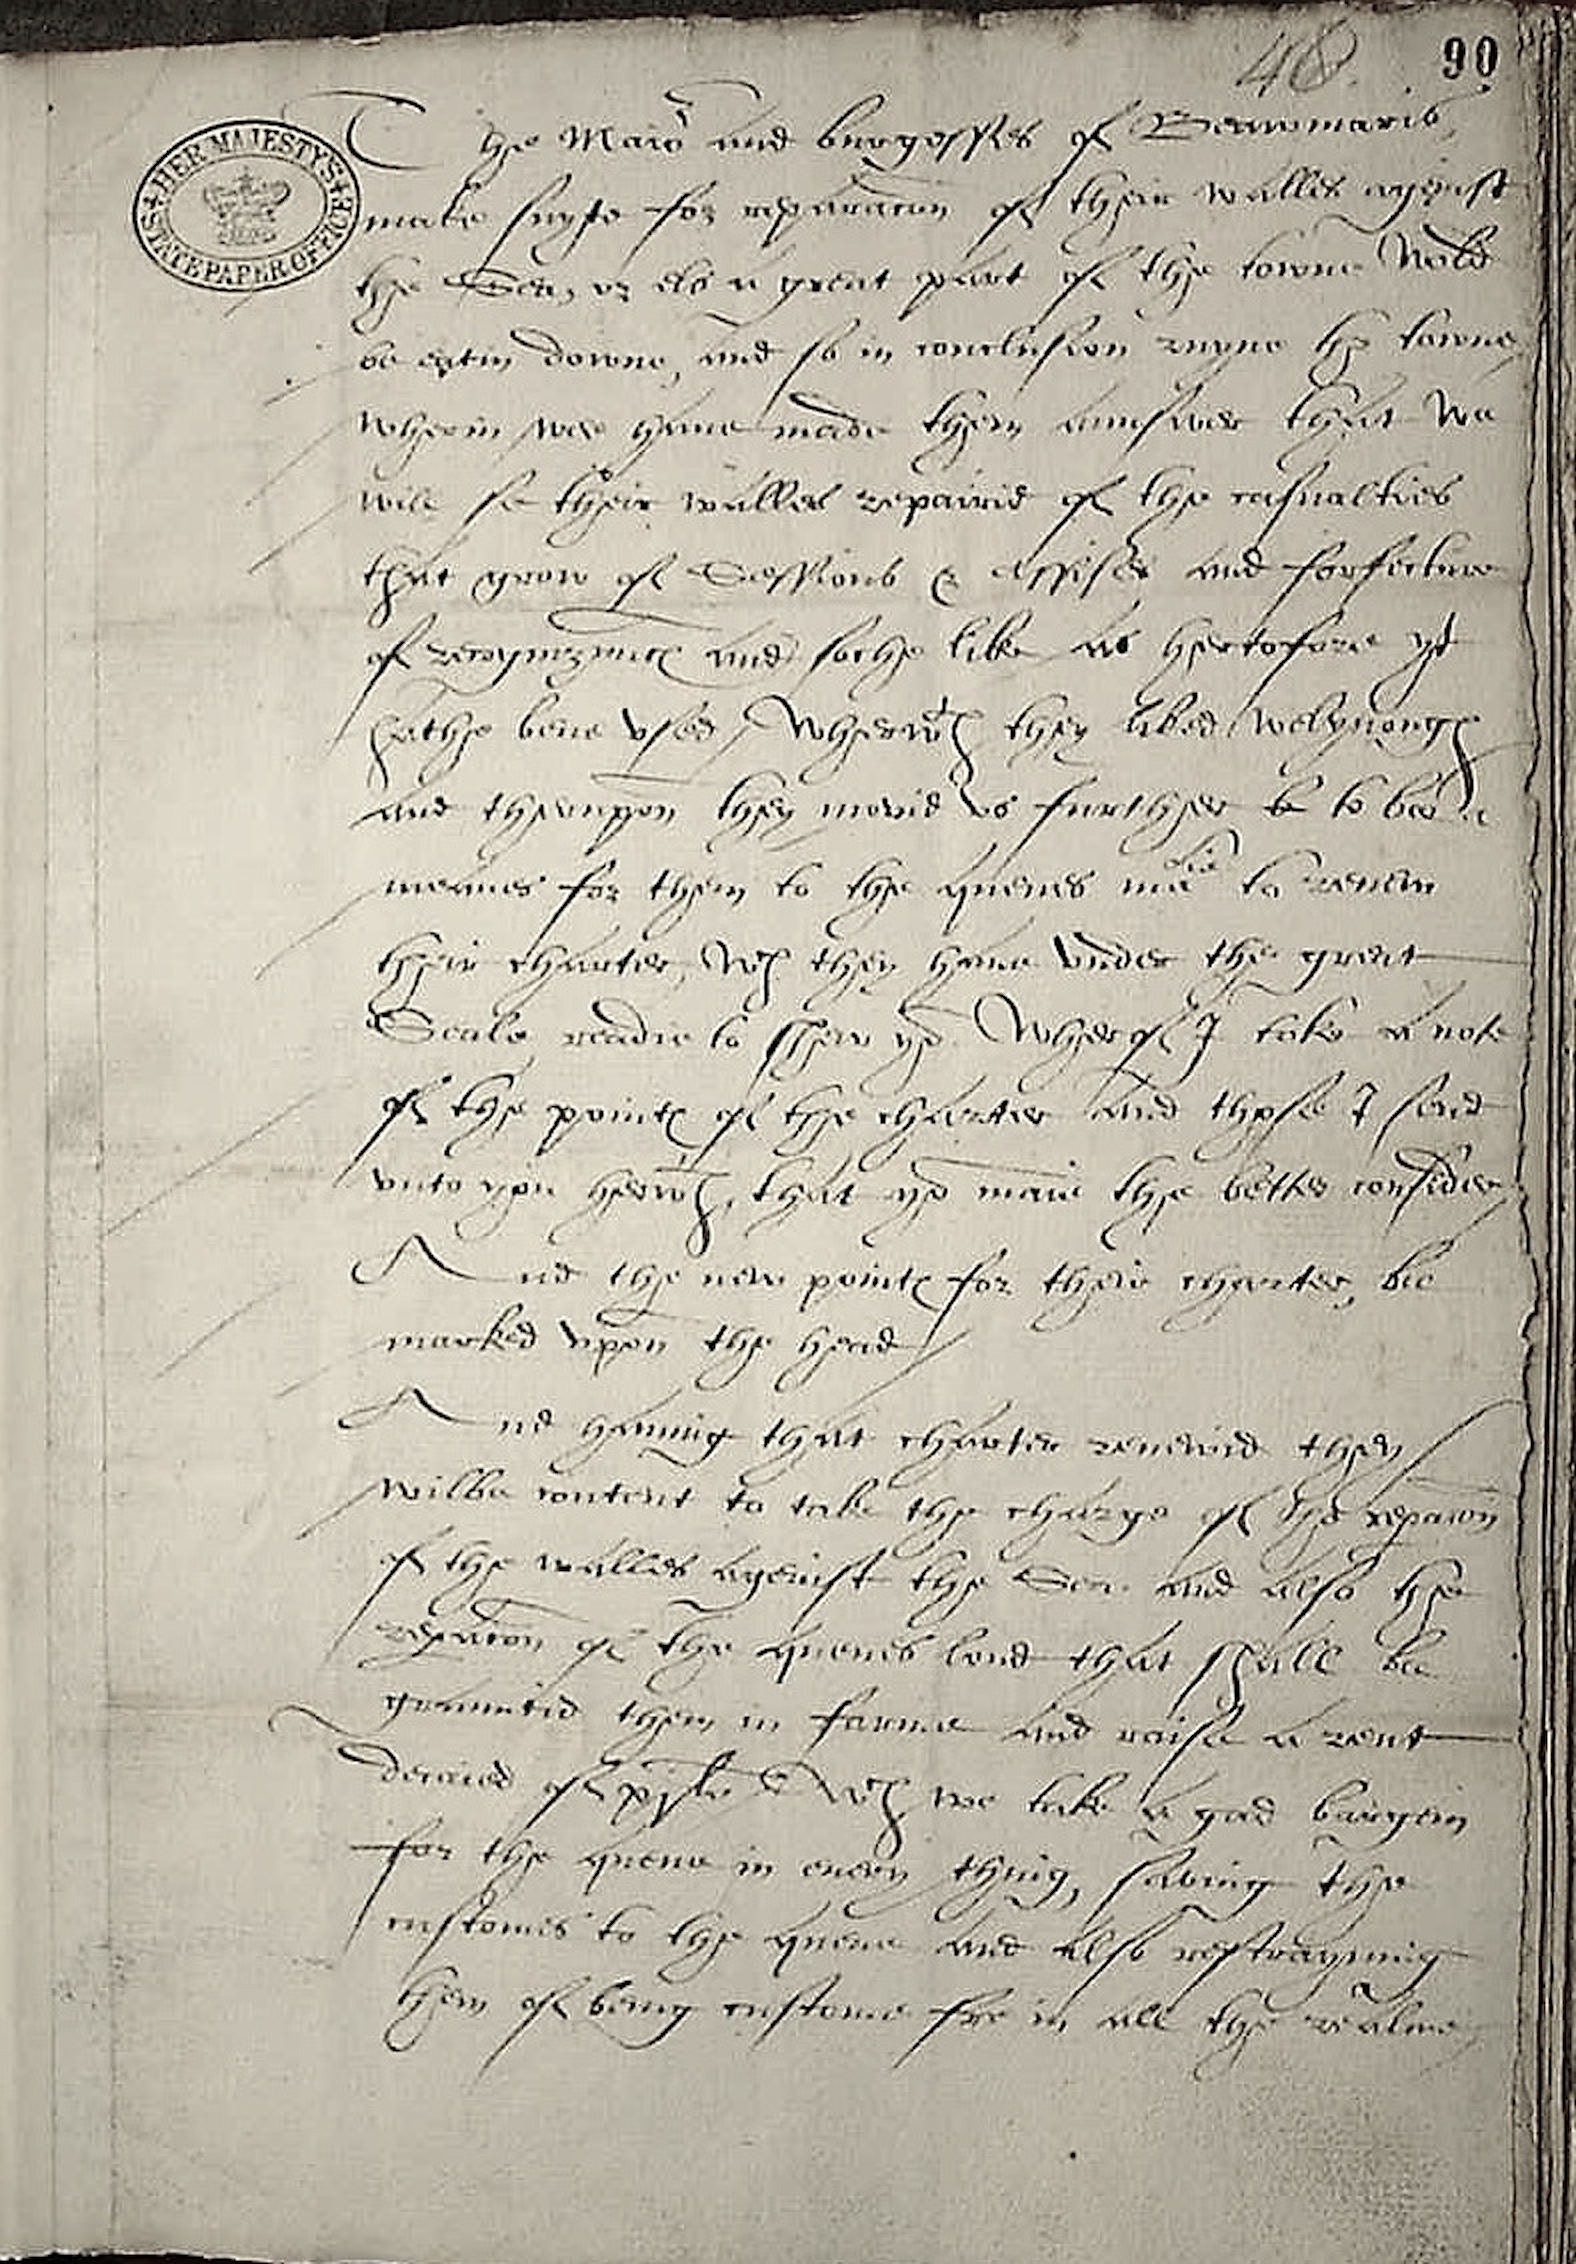 48. 90
HER MAJESTY'S STATE PAPER OFFICE
The Maior and burgesses of Bewmaris
make suyte for reparacon of their walles ageinst
the Sea, or els a great part of the towne Wold
be eatin downe, and so in conclusion ruyne the towne,
wherin we have made them aunswer that we
will se their walles repairid of the casualties
that grow of Sessions & Assises and forfecture
of recognizance and soche like as heertofore yt
hathe bene vsed / Wherwth they liked wel ynough
and therupon they movid vs further to to bee a
meanes for them to the quenes matie to renew
their charter, wch they have vnder the great
Seale readie to shew yt. Wherof I toke a note
of the pointes of the charter and those I send
vnto you herwth, that ye maie the better consider
And the new pointes for their charter, bee
marked vpon the head /
And having that charter renewid they
wilbe content to take the charge of the reparacon
of the walles ageinst the Sea and also the
reparacon of the quenes lond that shall be
grauntid them in farme and raise a rent
decaied of wch we take a god bargein
for the quene in every thing, saving the
customes to the quene and also restrayning
them of being custome fre in all the realme